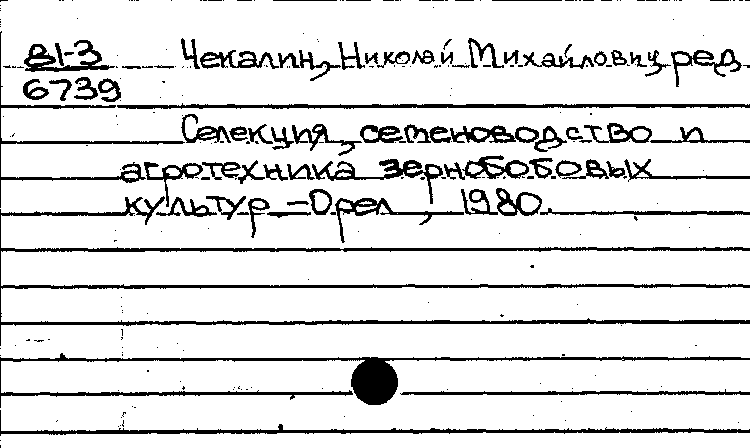 81-3 Чекалин, Николай Михайлович, ред
6739
Селекция, семеноводство и
агротехника зернобобовых
культур. – Орел, 1980.